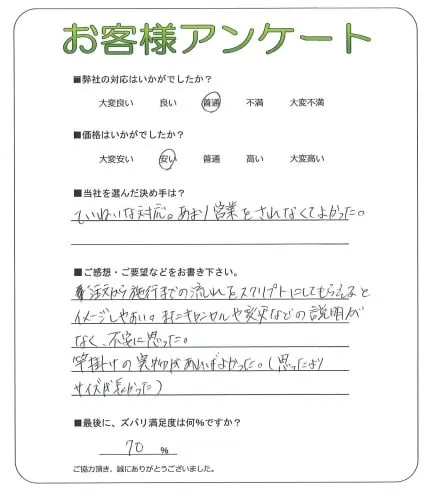 お客様アンケート
■弊社の対応はいかがでしたか?
大変良い 良い 普通 不満 大変不満
■価格はいかがでしたか?
大変安い 安い 普通 高い 大変高い
■当社を選んだ決め手は?
ていねいな対応。あまり営業をされなくてよかった。
■ご感想・ご要望などをお書き下さい。
注文から施行までの流れをスクリプトにしてもらえると
イメージしやすい。またキャンセルや変更などの説明が
なく、不安に思った。
竿掛けの実物があればよかった。(思ったより
サイズが長かった)
■最後に、ズバリ満足度は何%ですか?
70 %
ご協力頂き、誠にありがとうございました。